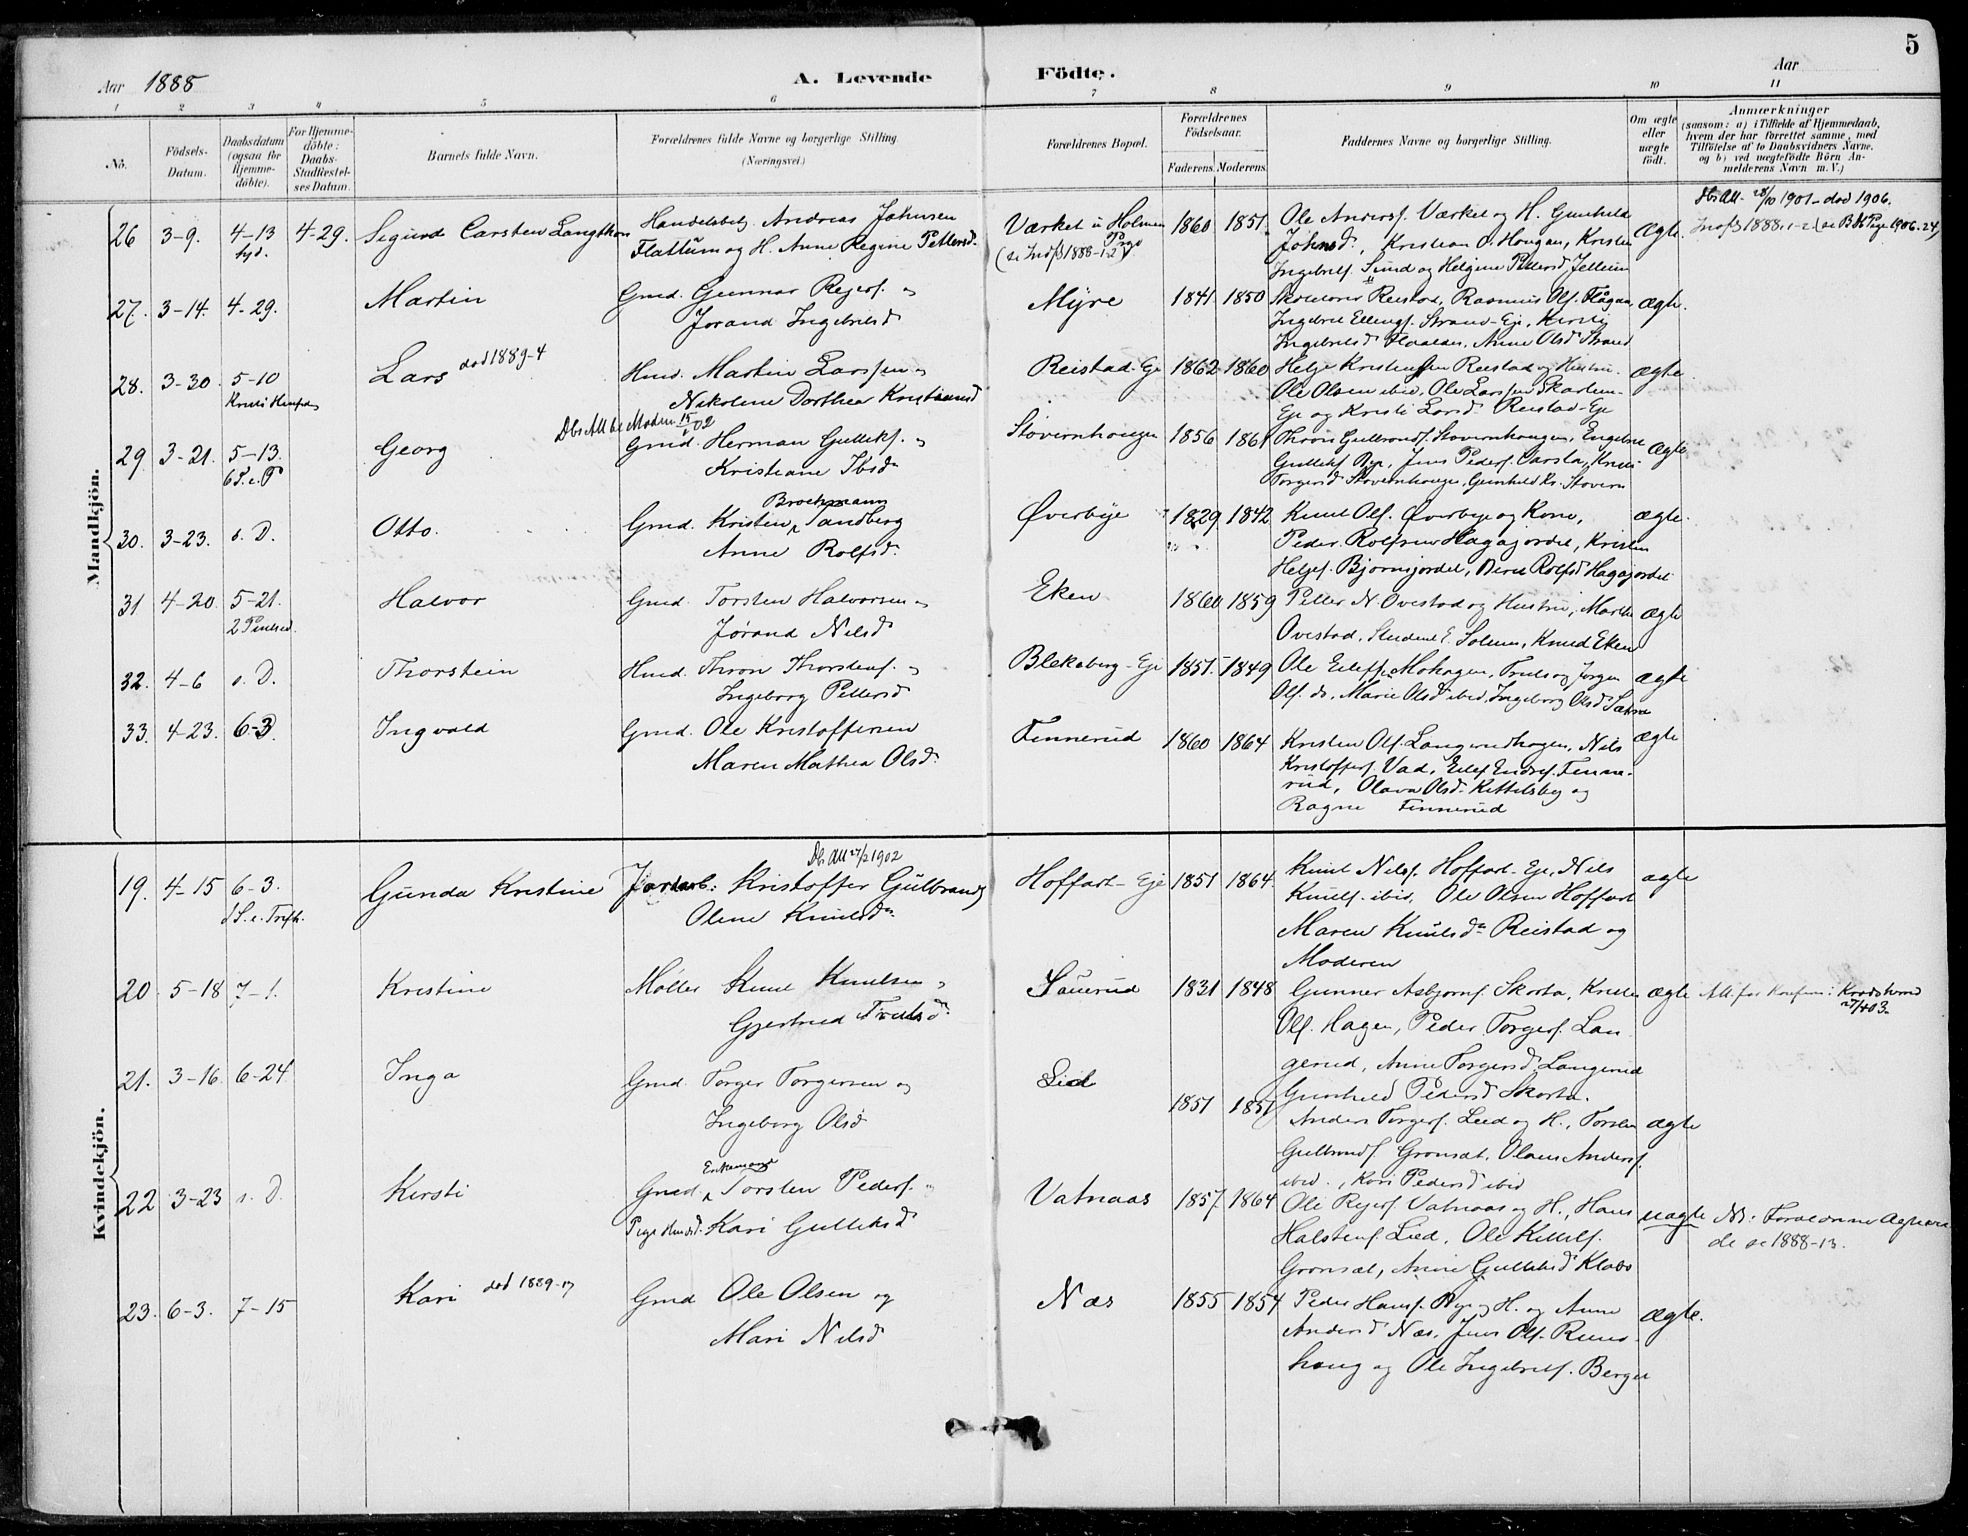 5
Aar 1888
A. Levende Födte.
Aar
1 2 3 4 5 6 7 8 9 10 11
No.
Födsels-Datum.
Daabsdatum (ogsaa for Hjemme-döbte).
For Hjemme-döbte: Daabs-Stadfestel-ses Datum.
Barnets fulde Navn.
Forældrenes fulde Navne og borgerlige Stilling. (Næringsvei.)
Forældrenes Bopæl.
Forældrenes Födselsaar.
Faderens. Moderens.
Faddernes Navne og borgerlige Stilling.
Om ægte eller uægte födt.
Anmærkninger
(saasom: a) i Tilfælde af Hjemmedaab, hvem der har forrettet samme, med Tilföielse af to Daabsvidners Navne, og b) ved uægtefödte Börn An-melderens Navn m. V.)
Mandkjön.
26 3-9. 4-13 4-29. Sigurd Carsten
Handelsbetj. Andreas Johnsen
Flattum og H. Anne Regine Pettersd.
Værket i Holmen
1860 1851.
Ole Andersf. Værket og H. Gunhild
Johnsd., Kristian O. Haugan, Kristen
Ingebretf. Sund og Helgine Pettersd Jellum
ægte.
Db. Att. 28/10 1901 - død 1906.
27. 3-14. 4-29. Martin
Gmd. Gunnar Rejerf. og
Jorand Ingebrilsd
Myre
1841 1850
Reistad, Rasmus Olf. Flågan,
Ingebret Ellingf. Strand-Eje, Kirsti
Ingebrilsd, Anne Olsd Strand
ægte.
28. 3-30. 5-10 Lars død 1889-4
Hmd. Martin Larssen og
Nikoline Dorthea Kristiansd
Reistad-Eje
1862 1860
Helge Kristensen Reistad og Hustru.
Ole Olsen ibid, Ole Larssen Skarten-
Eje og Kristi Larsd Reistad-Eje
ægte.
29 3-21. 5-13. Georg
6 S. e. P
Db. Att. Moderen 15/1 02
Gmd. Herman Gulliksf. og
Kristiane Ibsd
Stovernhougen
1856 1861
Thron Gulbrandf. Stovernhougen, Engebret
Gulliksf Bye, Jens Pederf. Carsta, Kristi
Torgersd Stovernhougen, Gunhild Kr. Stovern
ægte
30. 3-23. s. D. Otto.
Gmd. Kristen Brochmann Sandberg
Anne Rolfsd.
Øverbye
1829 1842
Knut Olf. Øverbye og Kone,
Peder Rolfsen Hagajordet, Kristen
Helgef. Bjørnsjordet, Berit Rolfsd Hagajordet
ægte.
31 4-20. 5-21. Halvor
2 Pintsed.
Gmd. Torsten Halvorsen og
Jørand Nilsd
Eken
1860 1859
Petter N. Ovestad og Hustru, Marthe
Ovestad, Student E. Solum, Knud Eken
ægte
32. 4-6 s. D. Thorstein
Hmd. Thron Thorstenf. og
Ingeborg Pettersd
Blekaberg-Eje
1851. 1849
Ole Eileff. Mohagen, Truls og Jørgen
Olf. do, Marie Olsd ibid, Ingeborg Olsd Sætra
ægte
33. 4-23. 6-3. Ingvald
Gmd. Ole Kristoffersen
Maren Mathea Olsd.
Finnerud
1860 1864
Kristen Olf. Langerudhagen, Nils
Kristofferf. Vad, Eilef Endref. Finne-
rud, Olava Olsd. Kittelsby og
Ragne Finnerud
ægte
Kvindekjön.
19. 4-15 6-3. Gunda Kristine
Db. Att 27/2 1902
Jordarb: Kristoffer Gulbrands
Oline Knutsd.
Hoffart-Eje
1851 1864
Knut Nilsf. Hoffart-Eje, Nils
Knutf. ibid, Ole Olsen Hoffart
Maren Knutsd. Reistad og
Moderen
ægte
20. 5-18 7-1. Kristine
Møller Knut Knutsen og
Gjertrud Trulsd.
Sauerud
1831 1848
Gunner Asbjørnf. Skarta, Kristen
Olf. Hagen, Peder Torgerf. Lan
gerud, Anne Torgersd Langerud
Gunhild Pedersd Skarta.
ægte
Att. for Konfirm. i Krødsherred
27/4 03.
21. 3-16 6-24 Inga
Gmd. Torger Torgersen og
Ingeborg Olsd
Lied
1851 1851
Anders Torgerf. Lied og H., Torsten
Gulbrandf. Grønsæt, Olaus Andersf.
ibid., Kari Pedersd ibid
ægte
22 3-23 s. D. Kirsti
Gmd. Enkemand Torsten Pederf. og
Pige Kari Gulliksd
Vatnaas
1857. 1864
Ole Rejerf. Vatnaas og H., Hans
Halstenf Lied, Ole Kittilf.
Grønsæt, Anne Gulliksd Klobo
uægte
NB: Forældrene Ægtevi
de se 1888-13.
23. 6-3. 7-15 Kari død 1889-17
Gmd Ole Olsen og
Mari Nilsd
Næs
1855 1854
Peder Hansf. Bye og H. og Anne
Andersd Næs, Jens Olf. Runs-
haug og Ole Ingebrilf. Berget
ægte.